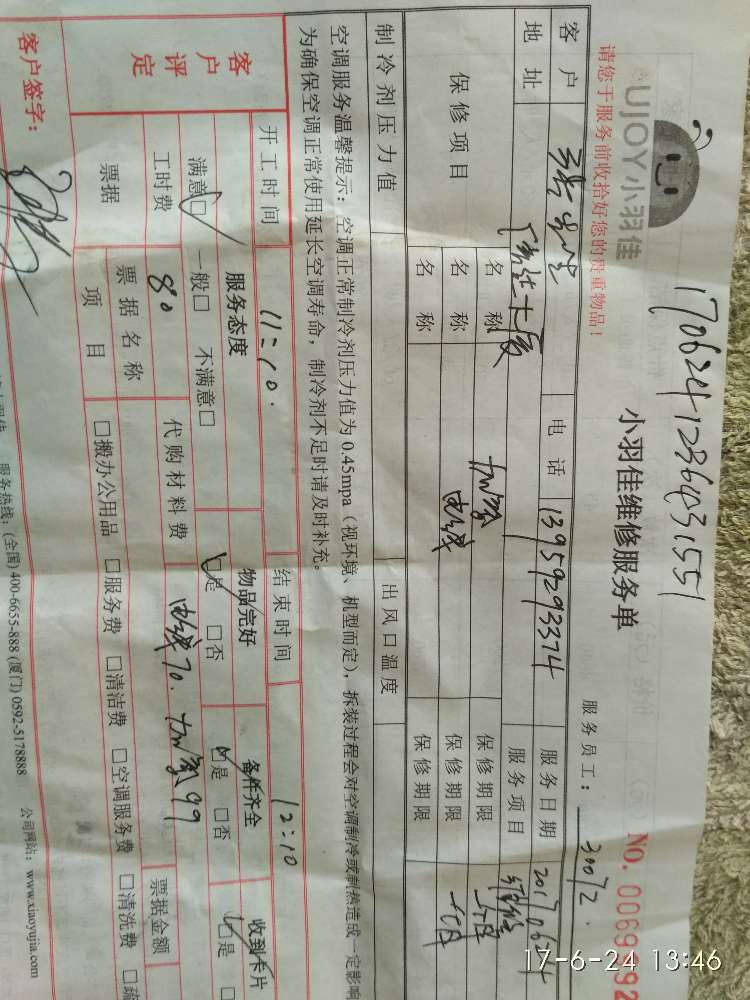 1706241236431551
UJOY小羽佳
小羽佳维修服务单
NO. 0069492
请您于服务前收拾好您的贵重物品！
服务员工：30072
客户 张先生 电话 13959293374 服务日期 20170624
地址 服务项目 维修
保修项目 名称 保修期限 一个月
名称 电线 保修期限 一个月
名称 保修期限
制冷剂压力值 出风口温度
空调服务温馨提示：空调正常制冷剂压力值为0.45mpa（视环境、机型而定），拆装过程会对空调制冷或制热造成一定影响
为确保空调正常使用延长空调寿命，制冷剂不足时请及时补充。
开工时间 11:10. 结束时间 12:10
客户评定
服务态度 物品完好 备件齐全 收到卡片
满意□ 一般□ 不满意□ □是 □否 □是 □否 □是
工时费 80 代购材料费 电线70. 99
票据 票据名称 票据金额
项目 □搬办公用品 □服务费 □清洁费 □空调服务费 □清洗费
客户签字：
服务热线：(全国) 400-6655-888 (厦门) 0592-5178888 公司网站：www.xiaoyujia.com
17-6-24 13:46